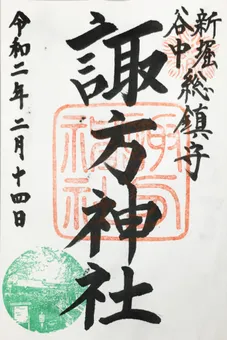 新堀
谷中総鎮守
諏方神社
令和二年二月十四日